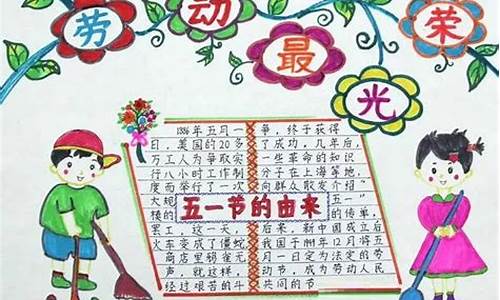 劳动最光荣
1886年五月一
日，美国的20多
万工人为争取实
行八小时工作制
度而举行了一次
大规
模的
五一节的由来
罢工，这一天
火车变成了僵蛇
商店里鸦雀无
声，就这样，
经过艰苦的斗
争，终于获得
了成功，几年后，
一些革命的知识
分子在上海等地，
向群众散发介绍
五一"
的传单，
后来，新中国成立后
我国于1949年12月将五
月一日定为法定的劳
动节，成为劳动人民
共同的节